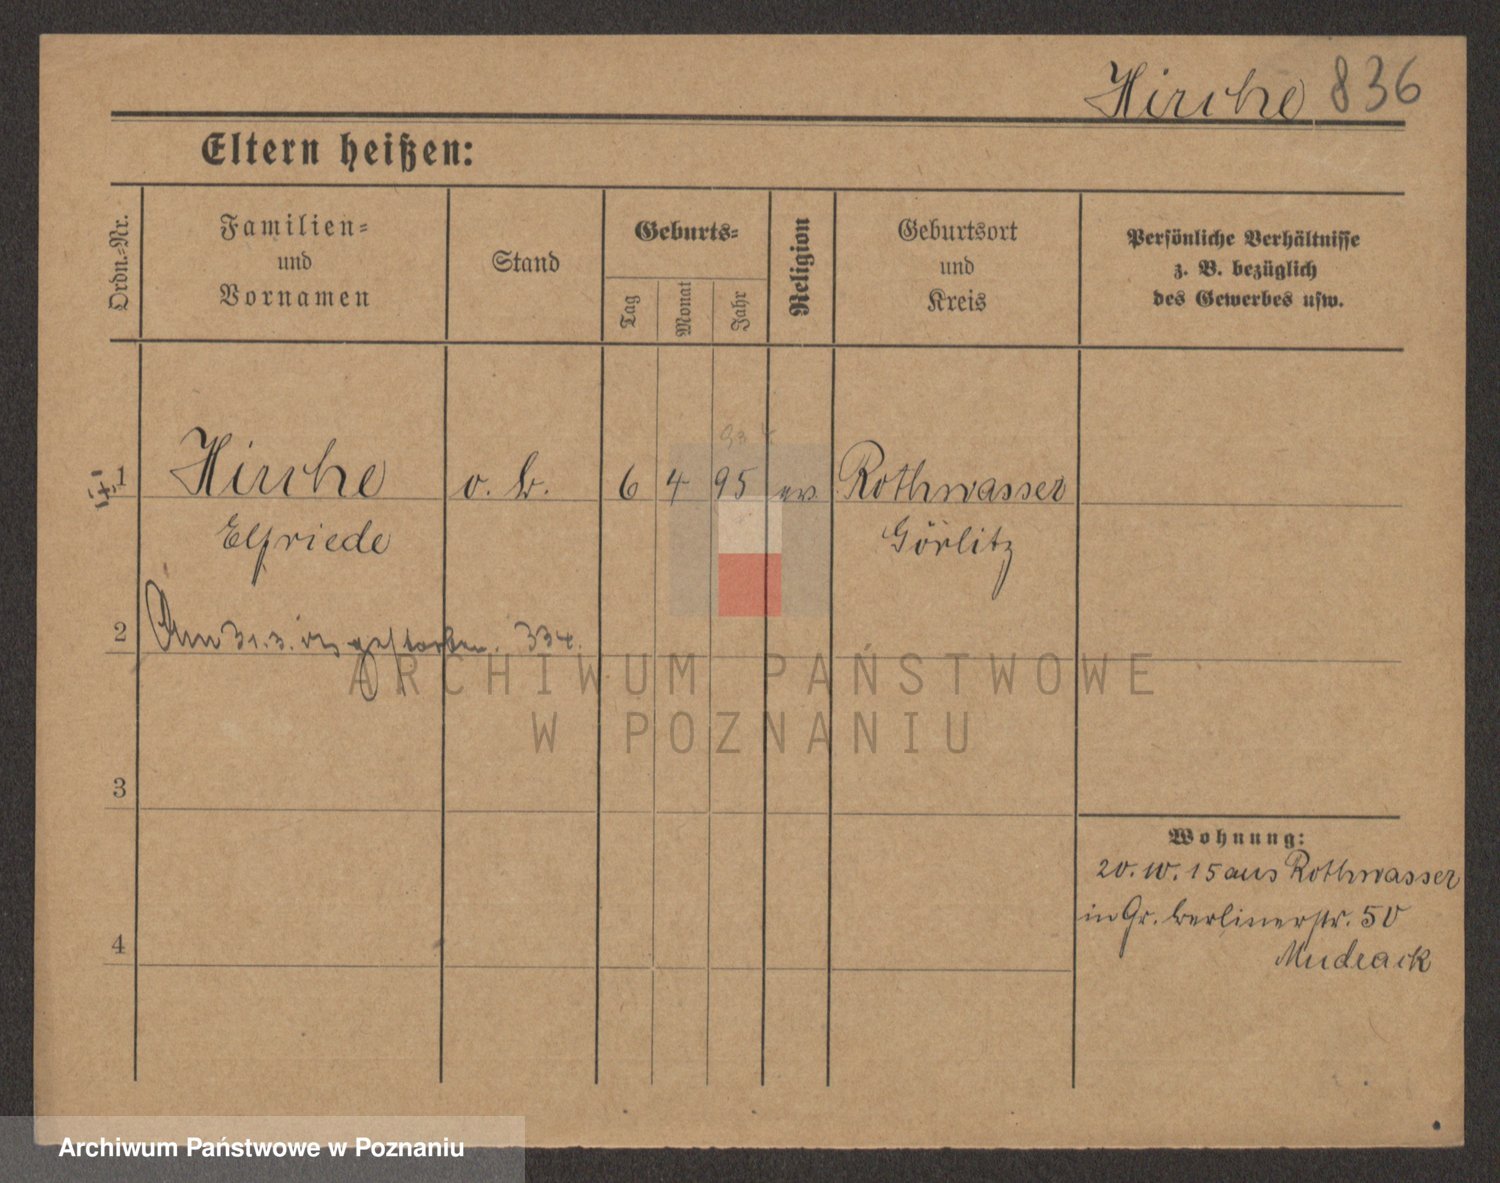 Hirche 836
Eltern heißen:
Ordn.-Nr.
Familien-
und
Vornamen
Stand
Geburts-
Tag
Monat
Jahr
Religion
Geburtsort
und
Kreis
Persönliche Verhältnisse
z. B. bezüglich
des Gewerbes usw.
1 Hirche o. b. 6 4 95 ev Rothwasser
Elfriede Görlitz
2 Am 31.3. gestorben. 334.
3
4
Wohnung:
20. 10. 15 aus Rothwasser
in Gr. Berlinerstr. 50
Mudrack
ARCHIWUM PAŃSTWOWE
W POZNANIU
Archiwum Państwowe w Poznaniu